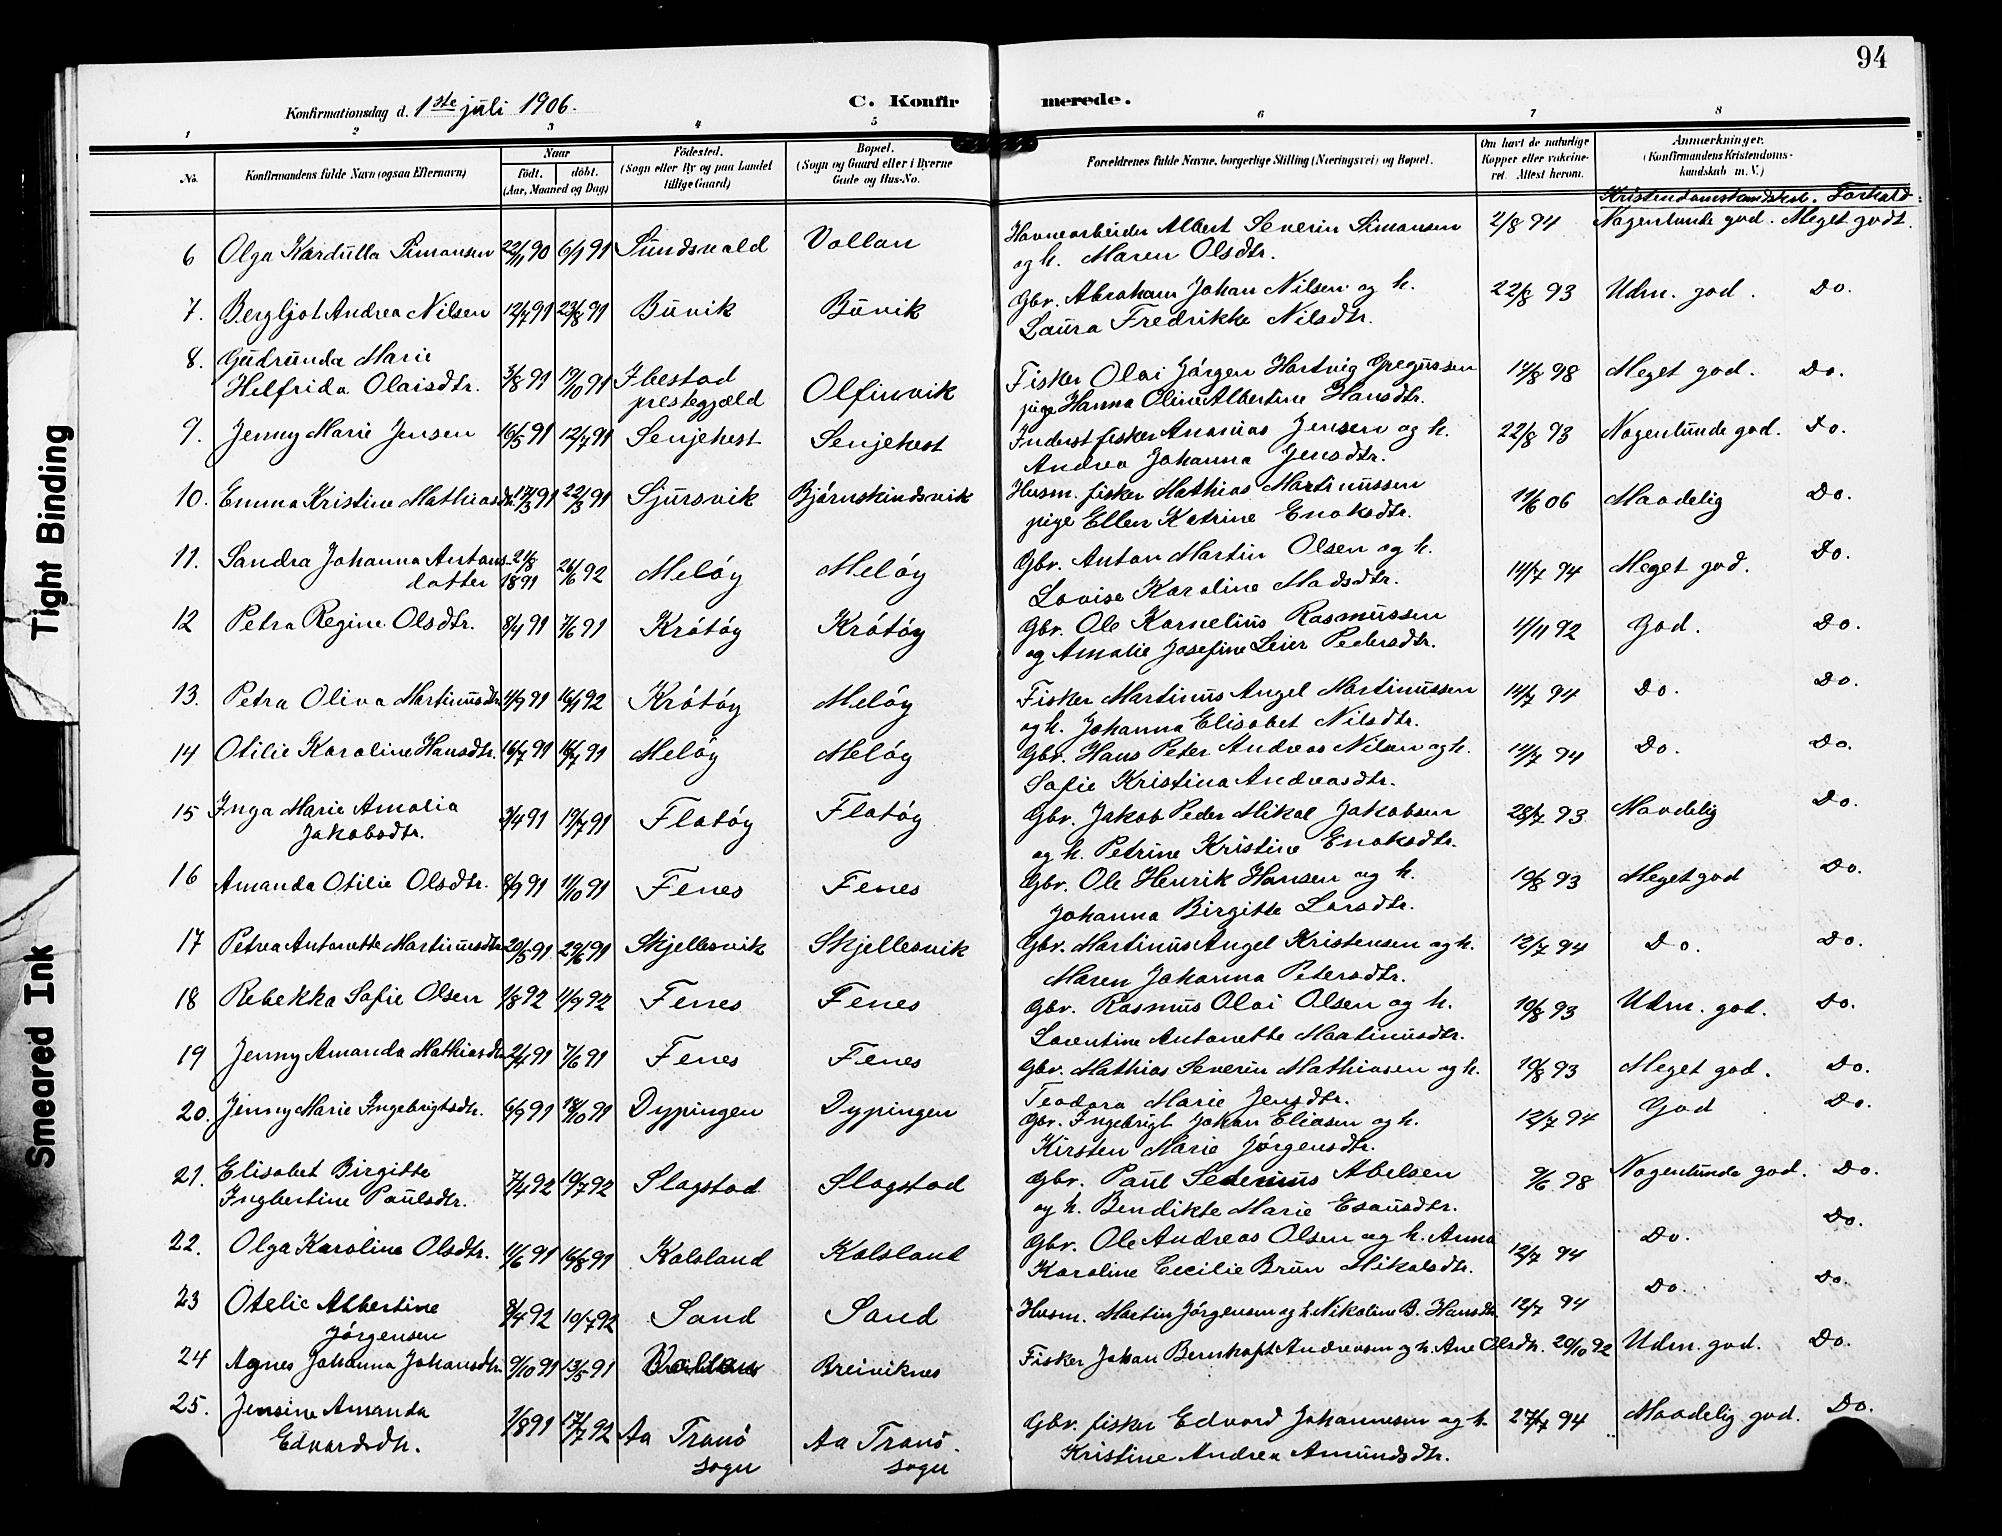 94
Konfirmationsdag d. 1ste juli 1906.
C. Konfirmerede.
1 2 3 4 5 6 7 8
No. Konfirmandens fulde Navn (ogsaa Efternavn) Naar født. døbt. (Aar, Maaned og Dag) Fødested. (Sogn eller By og paa Landet tillige Gaard) Bopæl. (Sogn og Gaard eller i Byerne Gade og Hus-No. Forældrenes fulde Navne, borgerlige Stilling (Næringsvei) og Bopæl. Om havt de naturlige Kopper eller vakcineret. Attest herom. Anmærkninger. (Konfirmandens Kristendomskundskab m. V.)
Kristendomskundskab. Forhold.
6 Olga Kardulla Simonsen 22/11 90 6/1 91 Sundsvald Vollan Havnearbeider Albert Severin Simonsen 2/8 94 Nogenlunde god. Meget godt.
og h. Maren Olsdtr.
7. Bergljot Andrea Nilsen 12/7 91 23/8 91 Buvik Buvik Gbr. Abraham Johan Nilsen og h. 22/8 93 Udm. god. Do.
Laura Fredrikke Nilsdtr.
8. Gudrunda Marie
Helfrida Olaisdtr. 3/8 91 19/10 91 Ibestad Olfinvik Fisker Olai Jørgen Hartvig Gregussen 17/8 98 Meget god. Do.
prestegjæld pige Hanna Oline Albertine Hansdtr.
9. Jenny Marie Jensen 16/5 91 12/7 91 Senjehest Senjehest Inderst fisker Ananias Jensen og h. 22/8 93 Nogenlunde god. Do.
Andrea Johanna Jensdtr.
10. Emma Kristine Mathiasdtr. 17/3 91 22/3 91 Sjursvik Bjørnskindsvik Husm. fisker Mathias Martinussen 11/6 06 Maadelig Do.
pige Ellen Katrine Enoksdtr.
11. Sandra Johanna Antons- 21/8 Gbr. Anton Martin Olsen og h. Do.
datter 1891 26/6 92 Meløy Meløy Lovise Karoline Madsdtr. 14/7 94 Meget god.
12 Petra Regine Olsdtr. 8/4 91 7/6 91 Krøtøy Krøtøy Gbr. Ole Kornelius Rasmussen 11/11 92 God. Do.
og Amalie Josefine Leier Pedersdtr.
13. Petra Oliva Martinusdtr. 4/9 91 16/1 92 Krøtøy Meløy Fisker Martinus Angel Martinussen 14/7 94 Do. Do.
og h. Johanna Elisabet Nilsdtr.
14 Otilie Karoline Hansdtr. 16/7 91 16/7 91 Meløy Meløy Gbr. Hans Peter Andreas Nilsen og h. 14/7 94 Do. Do.
Sofie Kristina Andreasdtr.
15 Inga Marie Amalia
Jakobsdtr. 3/4 91 19/7 91 Flatøy Flatøy Gbr. Jakob Peder Mikal Jakobsen 28/7 93 Maadelig Do.
og h. Petrine Kristine Enoksdtr.
16 Amanda Otilie Olsdtr. 8/9 91 11/10 91 Fenes Fenes Gbr. Ole Henrik Hansen og h. 19/8 93 Meget god Do.
Johanna Birgitte Larsdtr.
17 Petrea Antonette Martinusdtr. 20/5 91 29/6 91 Skjellesvik Skjellesvik Gbr. Martinus Angel Kristensen og h. 12/7 94 Do. Do.
Maren Johanna Petersdtr.
18 Rebekka Sofie Olsen 1/8 92 4/9 92 Fenes Fenes Gbr. Rasmus Olai Olsen og h. 10/8 93 Udm. god. Do.
Lorentine Antonette Martinusdtr.
19 Jenny Amanda Mathiasdtr. 2/4 91 7/6 91 Fenes Fenes Gbr. Mathias Severin Mathiasen og h. 19/8 93 Meget god. Do.
Teodora Marie Jensdtr.
20. Jenny Marie Ingebrigtsdtr. 6/9 91 18/10 91 Dypingen Dypingen Gbr. Ingebrigt Johan Eliasen og h. 12/7 94 God Do.
Kirsten Marie Jørgensdtr.
21. Elisabet Birgitte
Ingbertine Paulsdtr. 7/4 92 19/7 92 Slagstad Slagstad Gbr. Paul Sedenius Abelsen 9/6 98 Nogenlunde god. Do.
og h. Bendikte Marie Esausdtr.
22. Olga Karoline Olsdtr. 11/6 91 16/8 91 Kalsland Kalsland Gbr. Ole Andreas Olsen og h. Anna 12/7 94 Do. Do.
Karoline Cecilie Brun Mikalsdtr.
23 Otelie Albertine
Jørgensen 8/4 92 10/7 92 Sand Sand Husm. Martin Jørgensen og h. Nikoline B. Hansdtr. 12/7 94 Do. Do.
24 Agnes Johanna Johansdtr. 9/10 91 13/5 91 Breiviknes Fisker Johan Bernhoft Andreasen og h. Ane Olsdtr. 20/10 92 Udm. god. Do.
25. Jensine Amanda
Edvardsdtr. 1/8 91 17/7 92 Aa Tranø Aa Tranø Gbr. fisker Edvard Johannesen og h. 27/7 94 Maadelig god. Do.
sogn sogn Kristine Andrea Amundsdtr.
Tight Binding
Smeared Ink